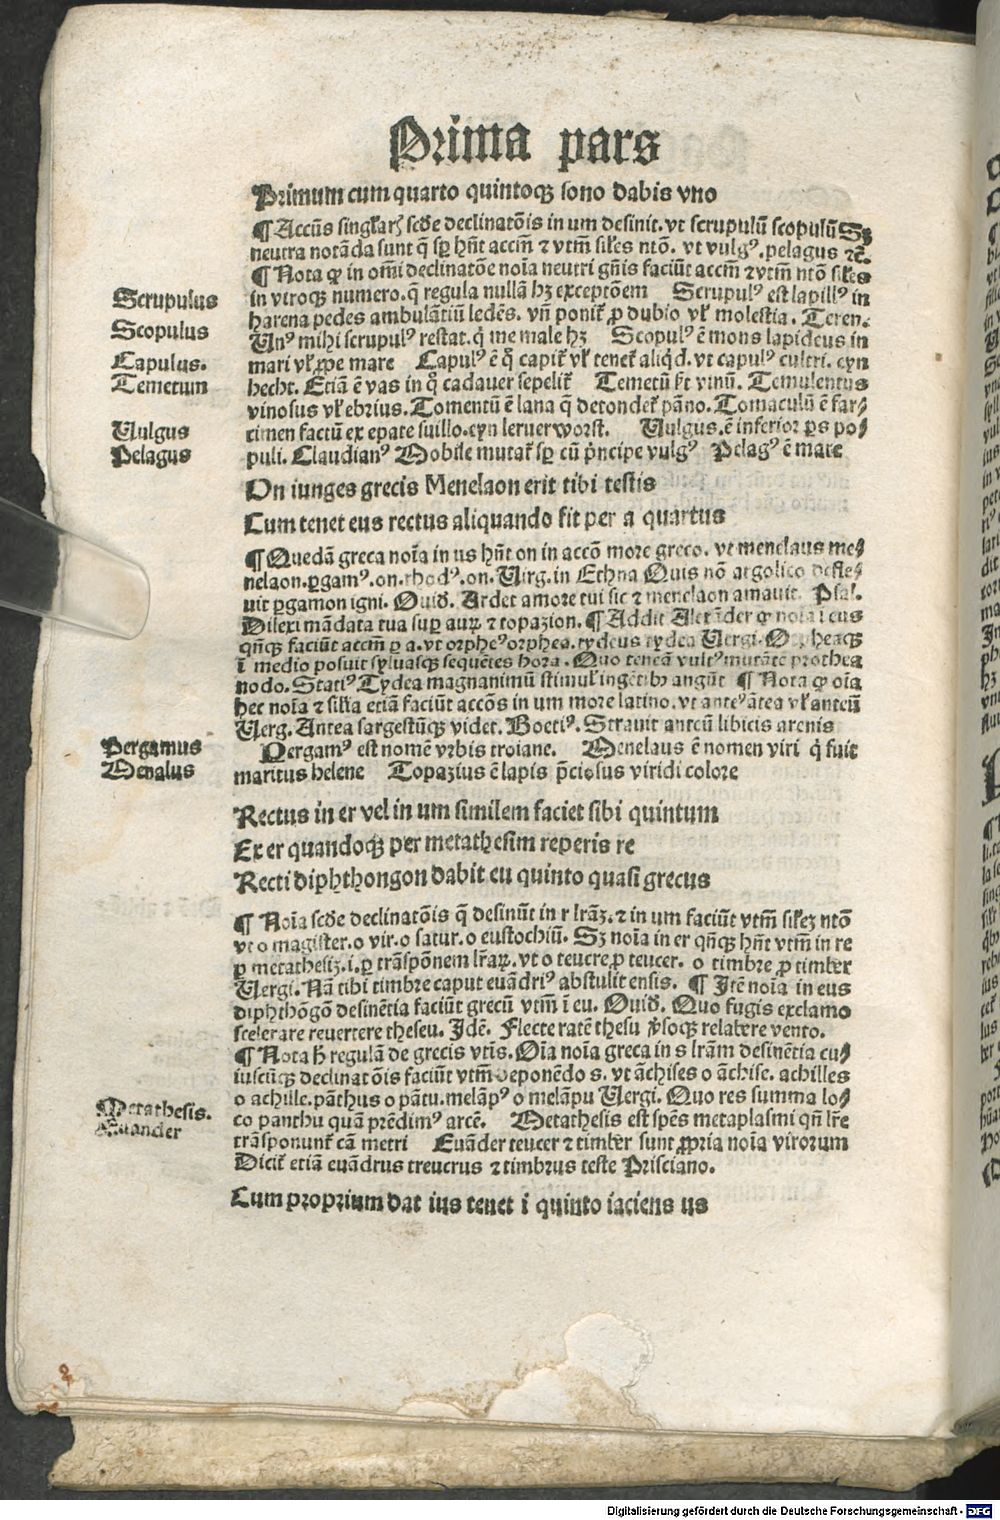 Prima pars
Primum cum quarto quintoqꝫ sono dabis vno
¶ Accūs singl̄arꝭ scd̄e declinatōis in um desinit. vt scrupulū scopulū Sꝫ
neutra notāda sunt q̄ sꝑ hn̄t accm̄ ⁊ vtm̄ sil̄es ntō. vt vulgꝰ. pelagus ⁊c̄.
¶ Nota ꝙ in om̄i declinatōe noīa neutri gn̄is faciūt accm̄ ⁊ vtm̄ ntō sil̄es
in vtroqꝫ numero. q̄ regula nullā hꝫ exceptōem Scrupulꝰ est lapillꝰ in
Scrupulus
harena pedes ambulātiū ledēs. vn̄ ponit᷑ ꝓ dubio vl̄ molestia. Teren.
Scopulus
Unꝰ mihi scrupulꝰ restat. q̇ me male hꝫ Scopulꝰ ē mons lapideus in
Capulus.
mari vl̄ ꝓpe mare Capulꝰ ē q̇ capit᷑ vl̄ tenet᷑ aliq̇d. vt capulꝰ cultri. eyn
Temetum
hecht. Etiā ē vas in q̊ cadauer sepelit᷑ Temetū fit vinū. Temulentus
vinosus vl̄ ebrius. Tomentū ē lana q̄ detondet᷑ pāno. Tomaculū ē far⸗
Uulgus
timen factū ex epate suillo. eyn leruer worst. Uulgus. ē inferior ꝑs po⸗
Pelagus
puli. Claudianꝰ Mobile mutat᷑ sꝑ cū pṙncipe vulgꝰ Pelagꝰ ē mare
On iunges grecis Menelaon erit tibi testis
Cum tenet eus rectus aliquando fit per a quartus
¶ Quedā greca noīa in us hn̄t on in accō more greco. vt menelaus me⸗
nelaon. ꝑgamꝰ. on. rhodꝰ. on. Uirg. in Ethna Quis nō argolico defle⸗
uit ꝑgamon igni. Ouid̄. Ardet amore tui sic ⁊ menelaon amauit. Psal.
Dilexi mādata tua suꝑ auꝝ ⁊ topazion. ¶ Addit Alexāder ꝙ noīa ī eus
qn̄qꝫ faciūt accm̄ ꝑ a. vt orpheꝰ orphea. tydeus tydea Uergi. Orpheaqꝫ
ī medio posuit syluasqꝫ sequētes hora. Quo teneā vultꝰ mutātē prothea
nodo. Statiꝰ Tydea magnanimū stimul̄ ingētibꝰ angūt ¶ Nota ꝙ oīa
hec noīa ⁊ sil̄ia etiā faciūt accōs in um more latino. vt anteꝰ ātea vl̄ anteū
Uerg. Antea sargestūqꝫ videt. Boetiꝰ. Strauit anteū libicis arenis
Pergamus
Pergamꝰ est nomē vrbis troiane. Menelaus ē nomen viri q̇ fuit
Menalus
maritus helene Topazius ē lapis p̄ciosus viridi colore
Rectus in er vel in um similem faciet sibi quintum
Ex er quandoqꝫ per metathesim reperis re
Recti diphthongon dabit eu quinto quasi grecus
¶ Noīa scd̄e declinatōis q̄ desinūt in r l̄rāꝫ. ⁊ in um faciūt vtm̄ sil̄eꝫ ntō
vt o magister. o vir. o satur. o eustochiū. Sꝫ noīa in er qn̄qꝫ hn̄t vtm̄ in re
ꝑ metathesiꝫ. i. ꝑ trāspōnem lr̄aꝝ. vt o teucre ꝓ teucer. o timbre ꝓ timber
Uergi. Nā tibi timbre caput euādriꝰ abstulit ensis. ¶ Itē noīa in eus
diphthōgō desinētia faciūt grecū vtm̄ ī eu. Ouid̄. Quo fugis exclamo
scelerate reuertere theseu. Idē. Flecte ratē thesu ꝟsoqꝫ relabere vento.
¶ Nota h̄ regulā de grecis vtīs. Oīa noīa greca in s lr̄am desinētia cu⸗
iuscūqꝫ declinatōis faciūt vtm̄ deponēdo s. vt āchises o āchise. achilles
Metathesis.
o achille. pāthus o pātu. melāpꝰ o melāpu Uergi. Quo res summa lo⸗
Euander
co panthu quā prēdimꝰ arcē. Metathesis est spēs metaplasmi qn̄ lr̄e
trāsponunt᷑ cā metri Euāder teucer ⁊ timber sunt ꝓpria noīa virorum
Dicit᷑ etiā euādrus treucrus ⁊ timbrus teste Prisciano.
Cum proprium dat ius tenet i quinto iaciens us
Digitalisierung gefördert durch die Deutsche Forschungsgemeinschaft - DFG